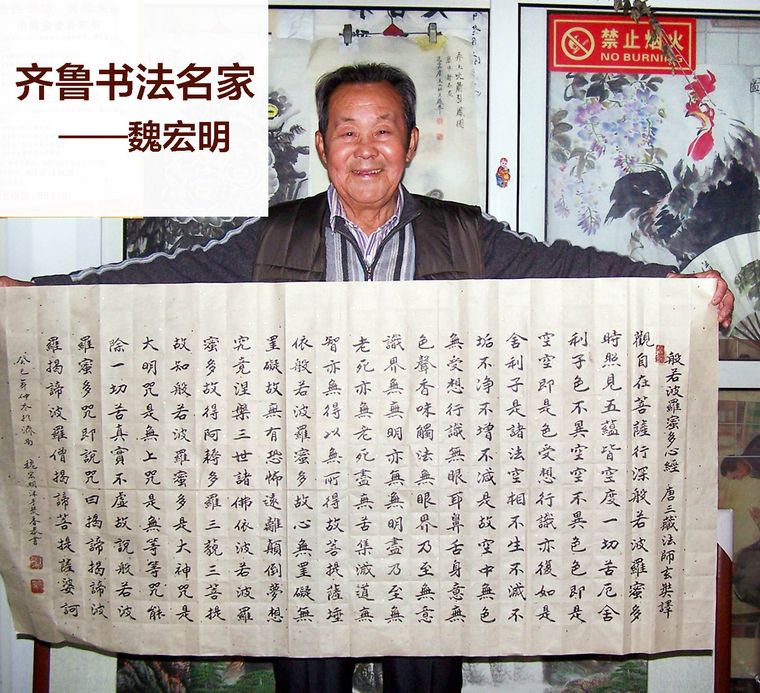 齐鲁书法名家
——魏宏明
禁止烟火
NO BURNING
般若波羅蜜多心經 唐三藏法師玄奘譯
觀自在菩薩行深般若波羅蜜多
時照見五蘊皆空度一切苦厄舍
利子色不異空空不異色色即是
空空即是色受想行識亦復如是
舍利子是諸法空相不生不滅不
垢不净不增不减是故空中無色
無受想行識無眼耳鼻舌身意無
色聲香味觸法無眼界乃至無意
識界無無明亦無無明盡乃至無
老死亦無老死盡無苦集滅道無
智亦無得以無所得故菩提薩埵
依般若波羅蜜多故心無罣礙無
罣礙故無有恐怖遠離顛倒夢想
究竟涅槃三世諸佛依波若波羅
蜜多故得阿耨多羅三藐三菩提
故知般若波羅蜜多是大神咒是
大明咒是無上咒是無等等咒能
除一切苦真實不虛故說般若波
羅蜜多咒即說咒曰揭諦揭諦波
羅揭諦波羅僧揭諦菩提薩婆訶
癸巳年仲冬於濟南 魏宏明沐手焚香恭書